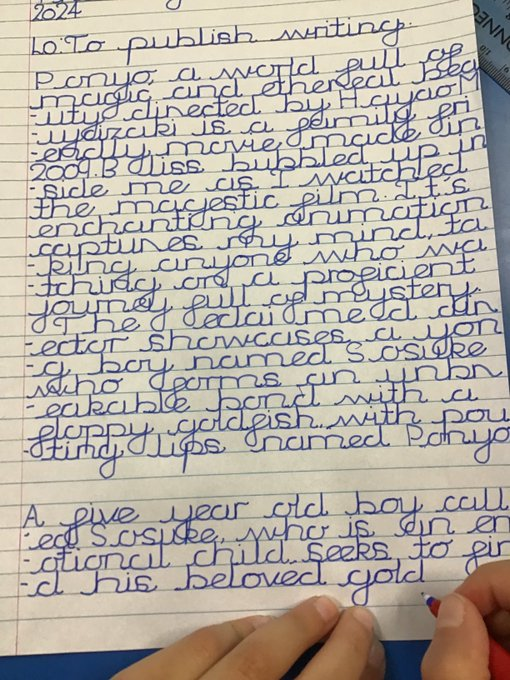 2024
LO: To publish writing.
Ponyo, a world full of
magic and ethereal bea
-uty directed by Hayao M
-iyazaki is a family fri
-endly movie made in
2009. Bliss bubbled up in
-side me as I watched
the magestic film. It's
enchanting animation
captures my mind, ta
-king anyone who wa
-tching on a proficient
journey full of mystery.
The acclaimed dir
-ector showcases a yon
-g boy named Sosuke
who forms an unbr
-eakable bond with a
floppy goldfish with pou
-ting lips named Ponyo
A five year old boy call
-ed Sosuke, who is an em
-otional child seeks to fin
-d his beloved gold